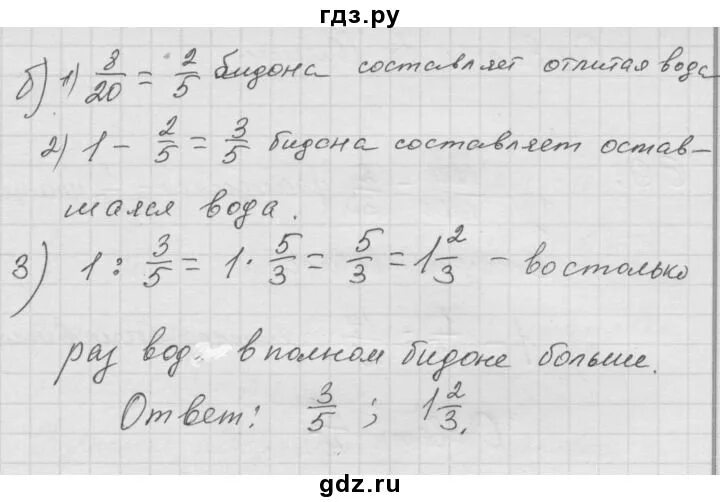 гдз.ру
б) 1) 8/20 = 2/5 бидона составляет отлитая вода
2) 1 - 2/5 = 3/5 бидона составляет остав-
шаяся вода.
3) 1 : 3/5 = 1 · 5/3 = 5/3 = 1 2/3 - во столько
раз вод в полном бидоне больше.
Ответ: 3/5 ; 1 2/3.
gdz.ru